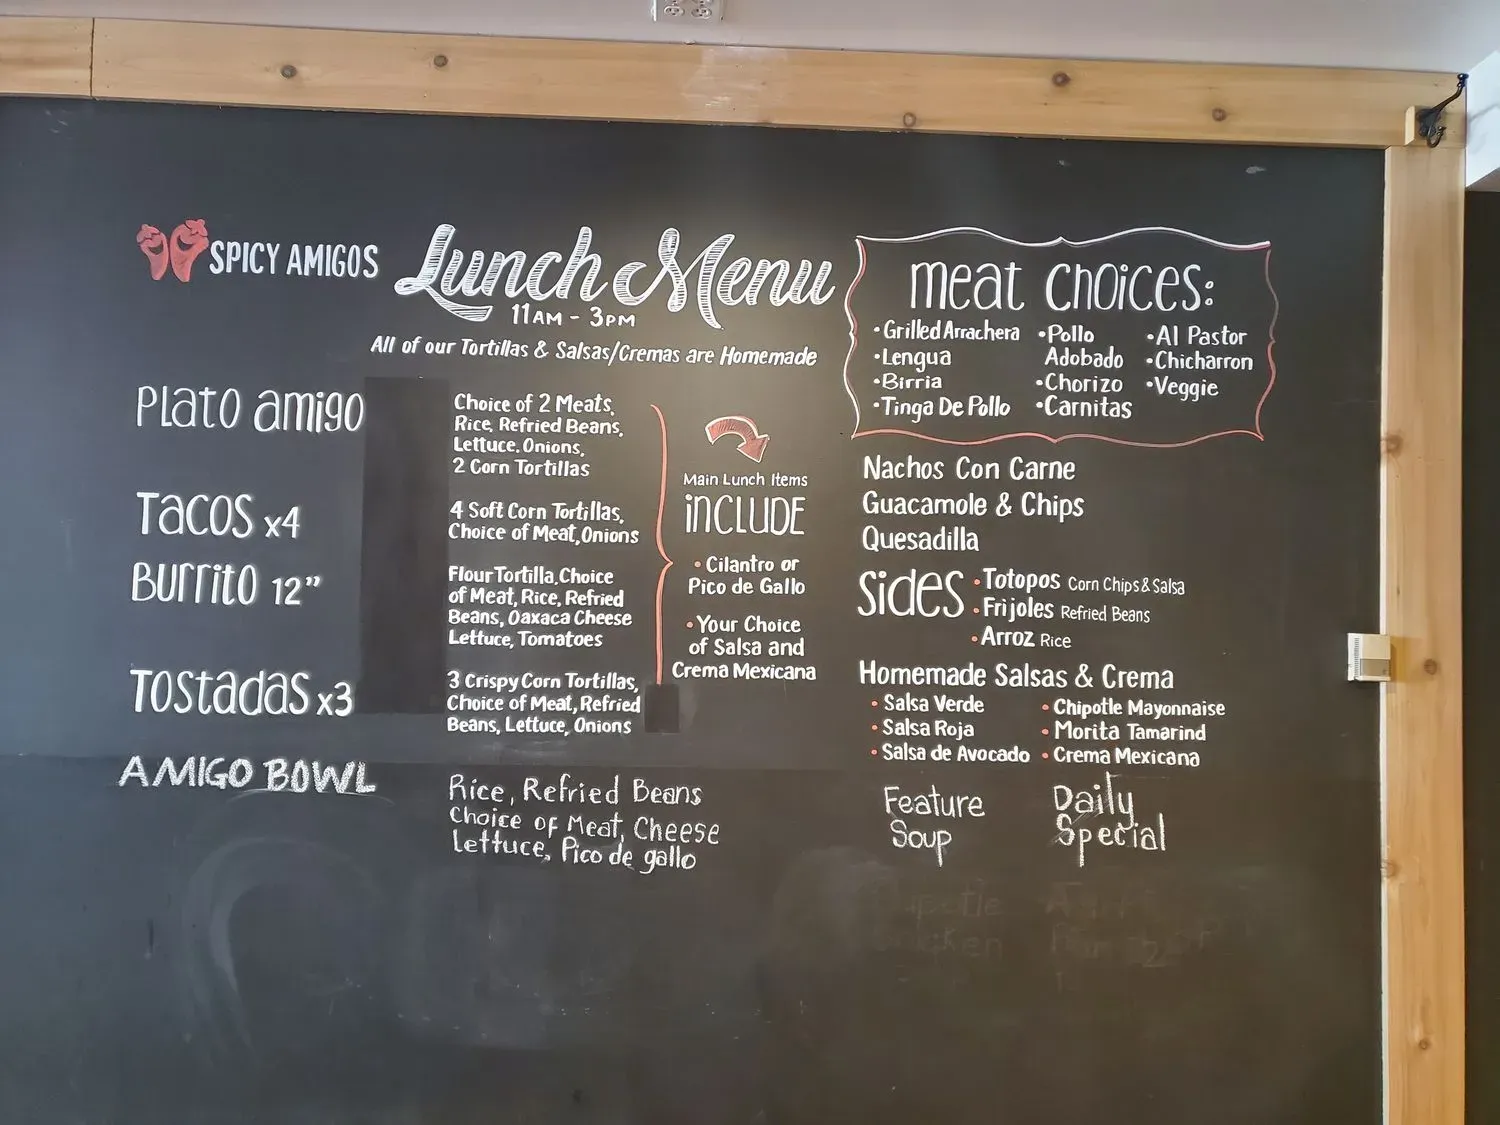 SPICY AMIGOS
Lunch Menu
11AM - 3PM
All of our Tortillas & Salsas/Cremas are Homemade
Plato Amigo
Choice of 2 Meats,
Rice, Refried Beans,
Lettuce. Onions,
2 Corn Tortillas
Tacos x4
4 Soft Corn Tortillas,
Choice of Meat, Onions
Burrito 12"
Flour Tortilla, Choice
of Meat, Rice, Refried
Beans, Oaxaca Cheese
Lettuce, Tomatoes
Tostadas x3
3 Crispy Corn Tortillas,
Choice of Meat, Refried
Beans, Lettuce, Onions
AMIGO BOWL
Rice, Refried Beans
Choice of Meat, Cheese
Lettuce, Pico de gallo
Main Lunch Items
INCLUDE
• Cilantro or
Pico de Gallo
• Your Choice
of Salsa and
Crema Mexicana
Meat Choices:
• Grilled Arrachera
• Lengua
• Birria
• Tinga De Pollo
• Pollo
Adobado
• Chorizo
• Carnitas
• Al Pastor
• Chicharron
• Veggie
Nachos Con Carne
Guacamole & Chips
Quesadilla
Sides
• Totopos Corn Chips & Salsa
• Frijoles Refried Beans
• Arroz Rice
Homemade Salsas & Crema
• Salsa Verde
• Salsa Roja
• Salsa de Avocado
• Chipotle Mayonnaise
• Morita Tamarind
• Crema Mexicana
Feature
Soup
Daily
Special